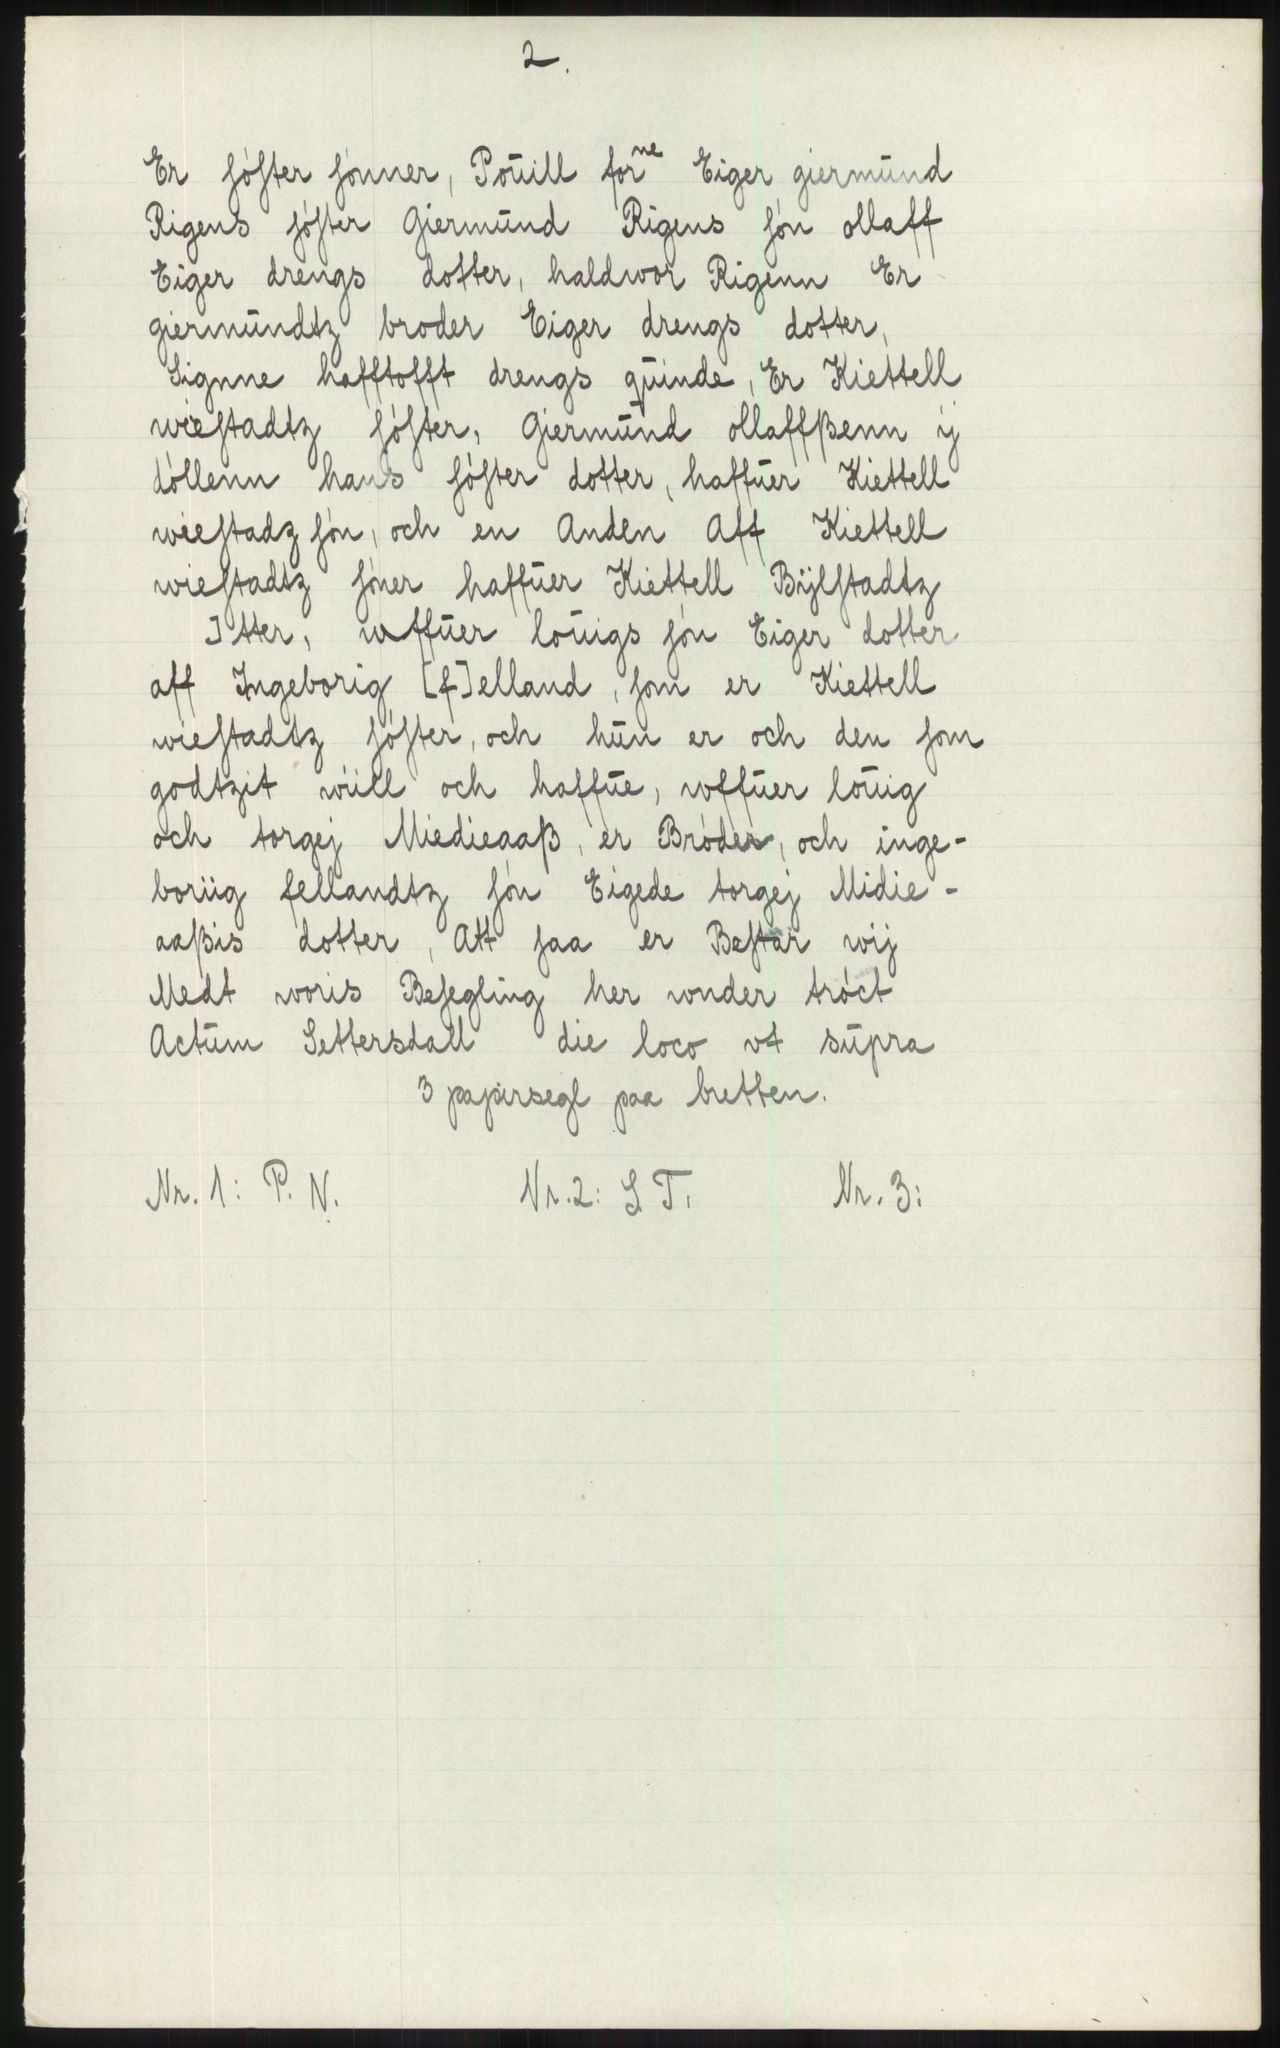 2.
Er ſóſter ſónner, Poūill forne Eiger giermūnd
Rigens ſóſter Giermūnd Rigens ſón ollaff
Eiger drengs dotter, haldwor Rigenn Er
giermūndtz broder Eiger drengs dotter,
Signne hafftofft drengs qūinde, Er Kiettell
wieſtadtz ſóſter, Giermūnd ollaffßenn ij
dóllenn hans ſóſter dotter, haffūer Kiettell
wieſtadz ſón, och en Anden Aff Kiettell
wieſtadtz ſóner haffūer Kiettell Bijlſtadtz
]tter, wffūer loūigs ſón Eiger dotter
aff Ingeborig [f]elland, ſom er Kiettell
wieſtadtz ſóſter, och hūn er och den ſom
godtzit wiill och haffūe, wffūer loūig
och torgej Miedieaaß, er Bróder, och inge-
boriig fellandtz ſón Eigede torgej Midie-
aaßis dotter, Att ſaa er Beſtar wij
Medt woris Beſegling her wnder tróct
Actūm Settersdall die loco vt sūpra
3 papirsegl paa bretten.
Nr. 1: P. N. Nr. 2: S T. Nr. 3: